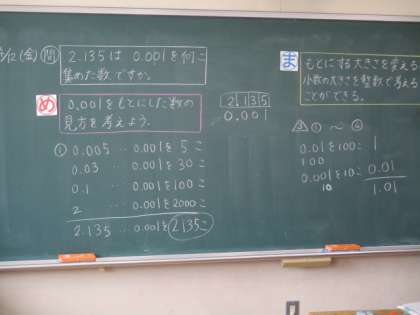 5/12(金) 問 2.135は 0.001を何こ
集めた数ですか。
め 0.001をもとにした数の
見方を考えよう.
2.135
0.001
① 0.005 … 0.001を 5 こ
0.03 … 0.001を 30 こ
0.1 … 0.001を 100 こ
2 … 0.001を 2000 こ
2.135 … 0.001を 2135こ
ま もとにする大きさを変えると
小数の大きさを整数で考える
ことができる。
① ～ ④
0.01を100こ 1
100
0.001を10こ 0.01
10 1.01